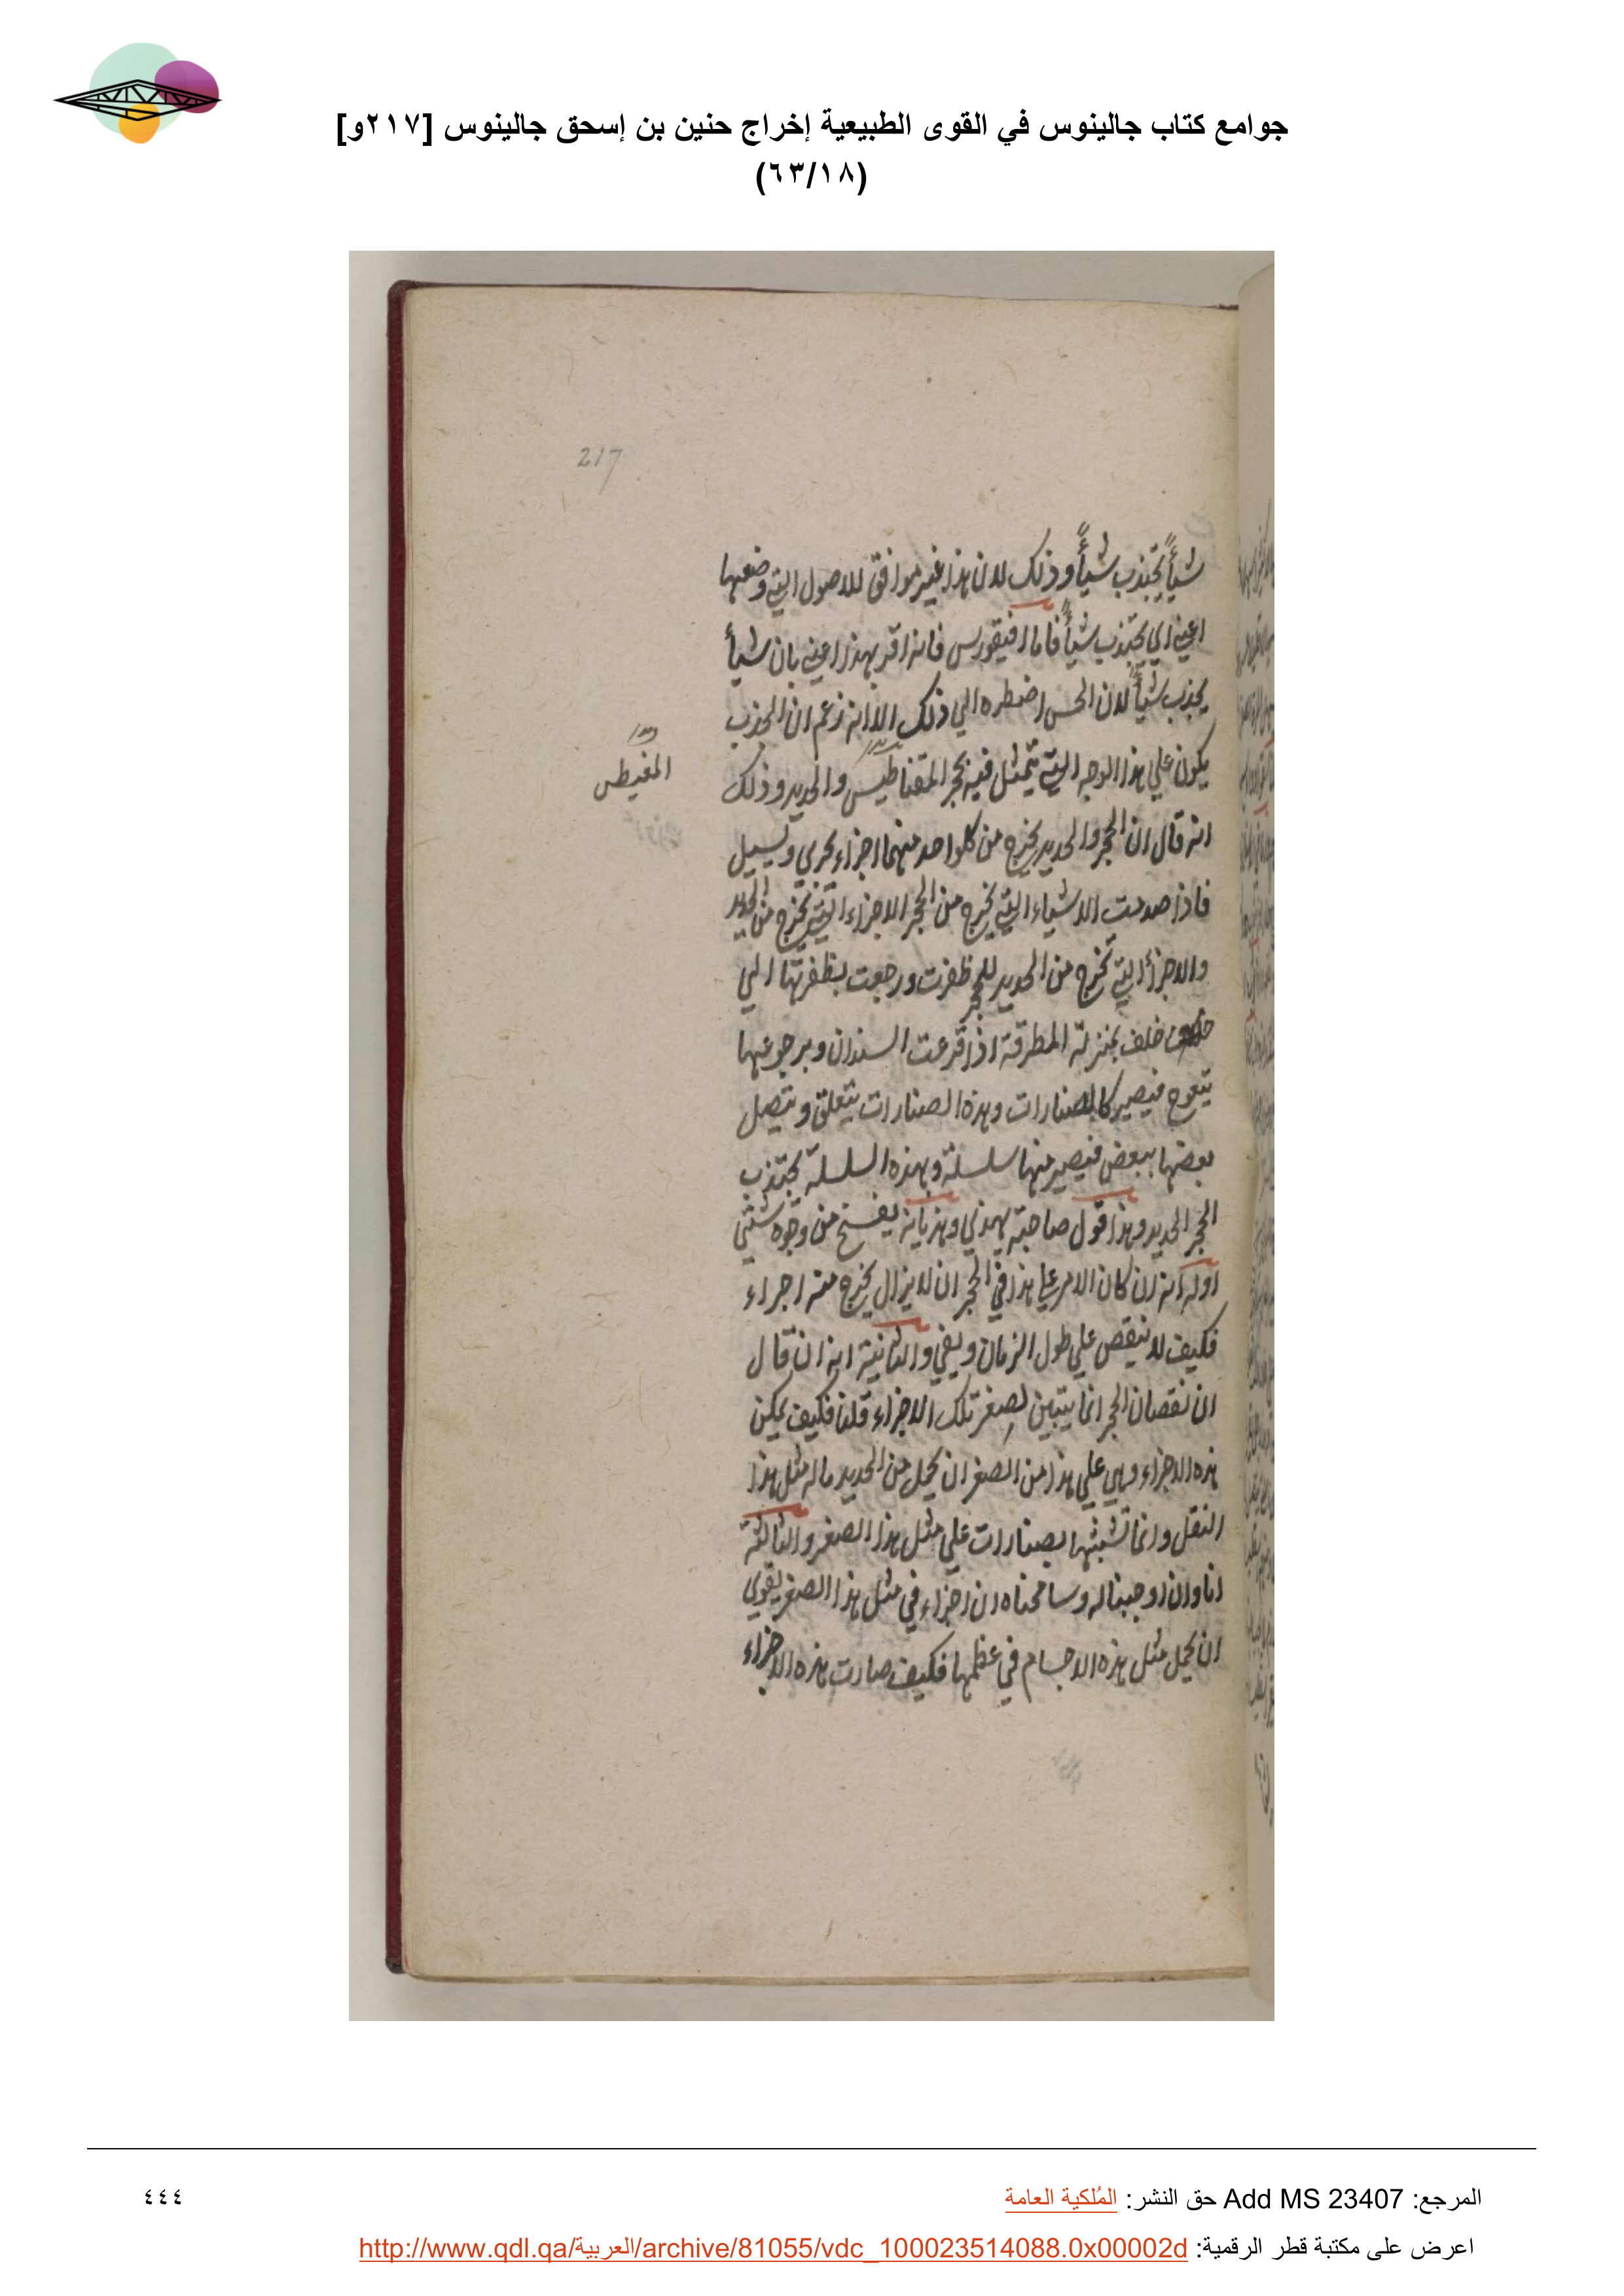 جوامع كتاب جالينوس في القوى الطبيعية إخراج حنين بن إسحق جالينوس [٢١٧و]
(٦٣/١٨)
217
شيأً يجتذب شيأً وذلك لان هذا غير موافق للاصول التي وضعها
اعني اي يجتذب شيأً فاما افيقورس فانه اقر بهذا اعني بان شيأ
يجذب شيأً لان الحس اضطره الي ذلك الا انه زعم ان الجذب
يكون علي هذا الوجه التي تمثل فيه بحجر المقناطيس والحديد وذلك
المغيطس
انه قال ان الحجر والحديد يخرج من كلواحد منهما اجزاء تجري وتسيل
فاذا صدمت الاشياء التي تخرج من الحجر الاجزاء التي تخرج من الحديد
والاجزأ التي تخرج من الحديد للحجر ظفرت ورجعت بظفرتها الي
خلف بمنزلة المطرقة اذا قرعت السندان وبرجوعها
يتعوج فيصير كالصنارات وهذه الصنارات يتعلق ويتصل
بعضها ببعض فيصير منها سلسلة وبهذه السلسلة يجتذب
الحجر الحديد وهذا قول صاحبه يهذي وهذيانه يفسخ من وجوه شتي
اوله انه ان كان الامر علي هذا في الحجر ان لا يزال يخرج منه اجراء
فكيف لا ينقص علي طول الزمان ويفني والثانية انه ان قال
ان نقصان الحجر انما يتبين لصغر تلك الاجزاء قلنا فكيف يمكن
هذه الاجزاء وهي علي هذا من الصغر ان تحمل من الحديد ماله مثل هذا
الثقل وانما تشبثها بصنارات علي مثل هذا الصغر والثالثة
انا وان اوجبنا له وسامحناه ان اجزاء في مثل هذا الصغر يقوي
ان تحمل مثل هذه الاجسام في عظمها فكيف صارت هذه الاجزاء
المرجع: Add MS 23407 حق النشر: المُلكية العامة
٤٤٤
اعرض على مكتبة قطر الرقمية: http://www.qdl.qa/العربية/archive/81055/vdc_100023514088.0x00002d